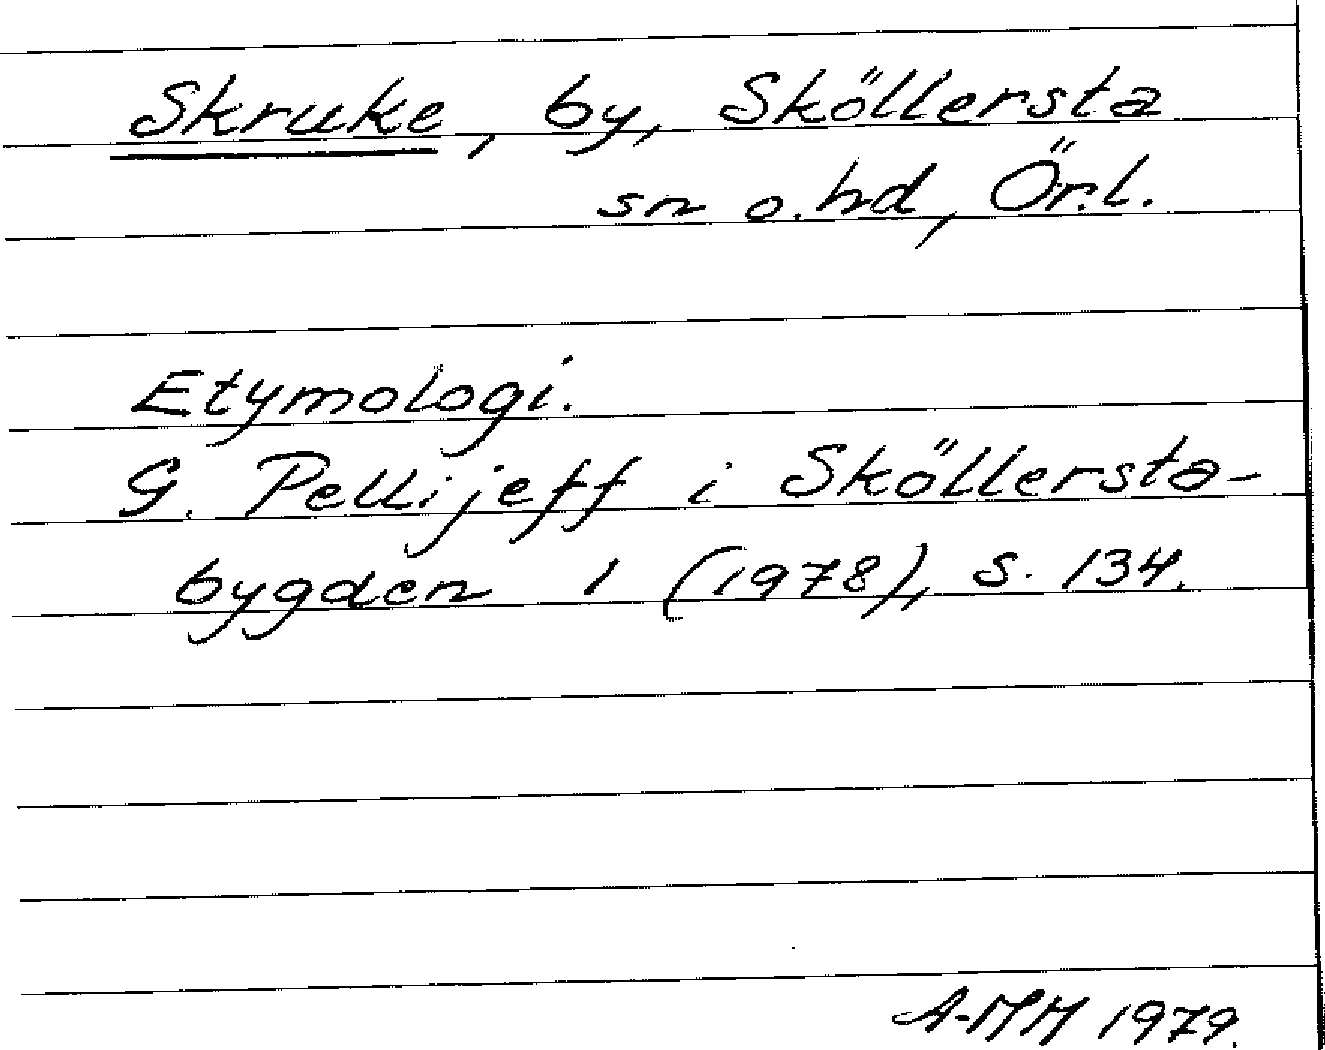 Skruke, by, Sköllersta
sn o. hd, Ör.l.
Etymologi.
G. Pellijeff i Sköllersta-
bygden 1 (1978), s. 134.
A-MH 1979.